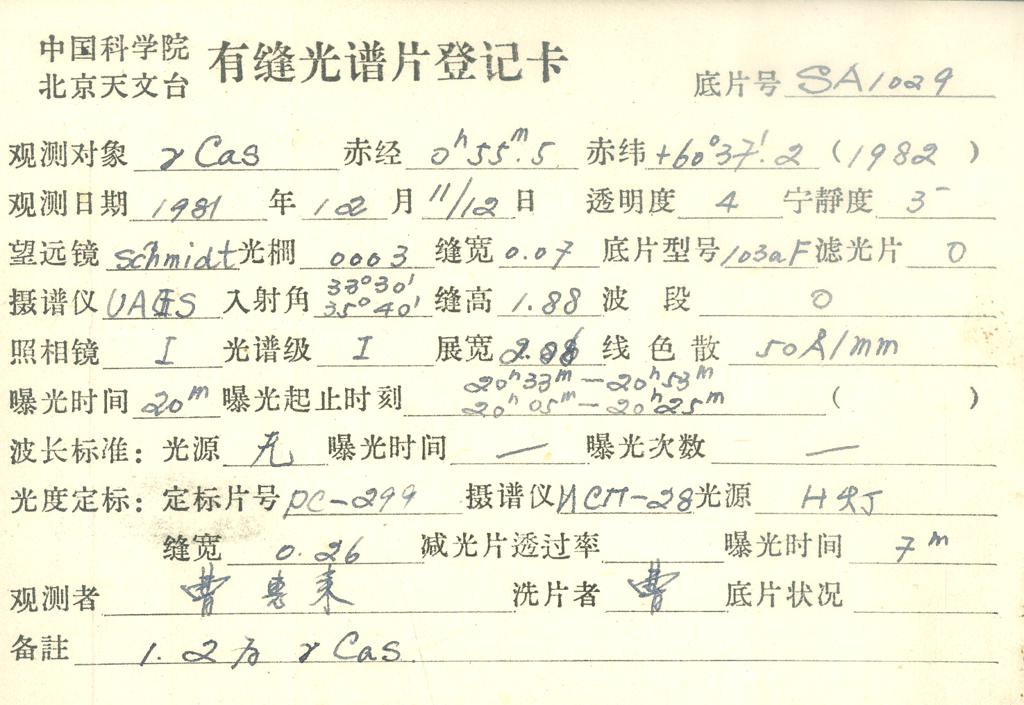 中国科学院
北京天文台 有缝光谱片登记卡 底片号 SA1029
观测对象 γ Cas 赤经 0h55m.5 赤纬 +60°37'.2 (1982)
观测日期 1981 年 12 月 11/12 日 透明度 4 宁静度 3-
望远镜 Schmidt 光栅 0003 缝宽 0.07 底片型号 103aF 滤光片 0
摄谱仪 入射角 33°30' 35°40' 缝高 1.88 波 段 0
照相镜 I 光谱级 I 展宽 线色散 50Å/mm
曝光时间 20m 曝光起止时刻 20h33m—20h53m ( )
20h05m—20h25m
波长标准: 光源 无 曝光时间 — 曝光次数 —
光度定标: 定标片号 PC-299 摄谱仪 ИСП-28 光源
缝宽 0.26 减光片透过率 曝光时间 7m
观测者 曹惠来 洗片者 曹 底片状况
备註 1.2为 γ Cas.